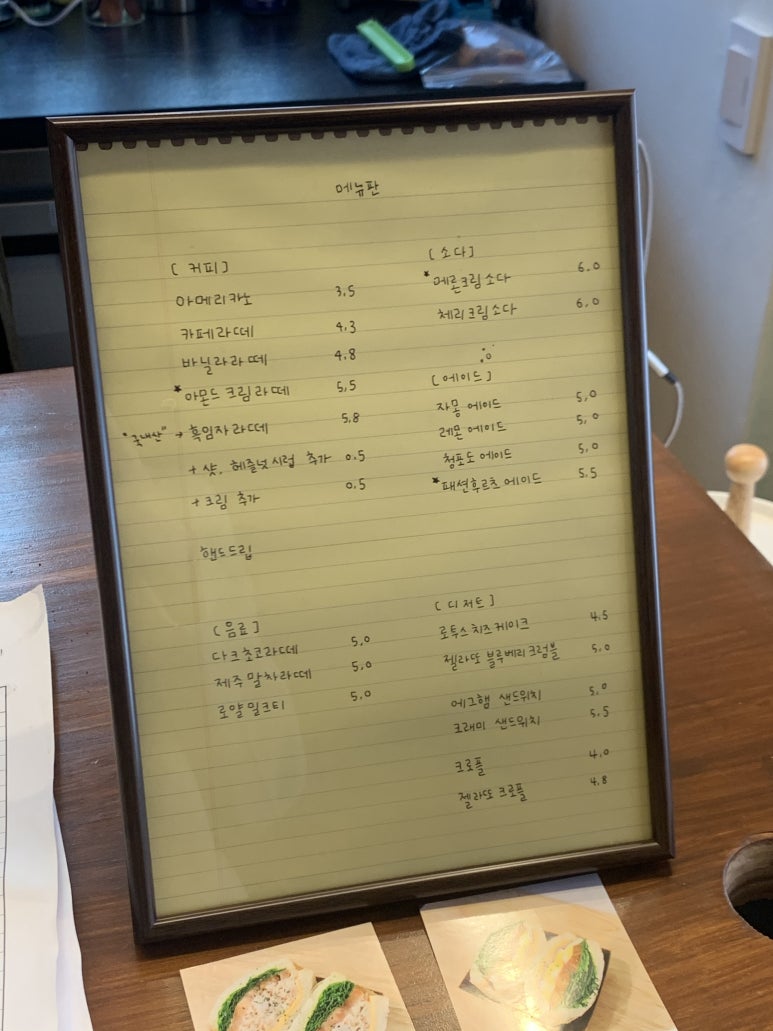 메뉴판
[커피]
아메리카노 3.5
카페라떼 4.3
바닐라라떼 4.8
*아몬드 크림라떼 5.5
"국내산" → 흑임자라떼 5.8
+ 샷, 헤즐넛시럽 추가 0.5
+ 크림 추가 0.5
핸드드립
[음료]
다크초코라떼 5.0
제주말차라떼 5.0
로얄밀크티 5.0
[소다]
*메론크림소다 6.0
체리크림소다 6.0
[에이드]
자몽에이드 5.0
레몬에이드 5.0
청포도에이드 5.0
*패션후르츠에이드 5.5
[디저트]
로투스치즈케이크 4.5
젤라또 블루베리크럼블 5.0
에그햄 샌드위치 5.0
크래미 샌드위치 5.5
크로플 4.0
젤라또 크로플 4.8